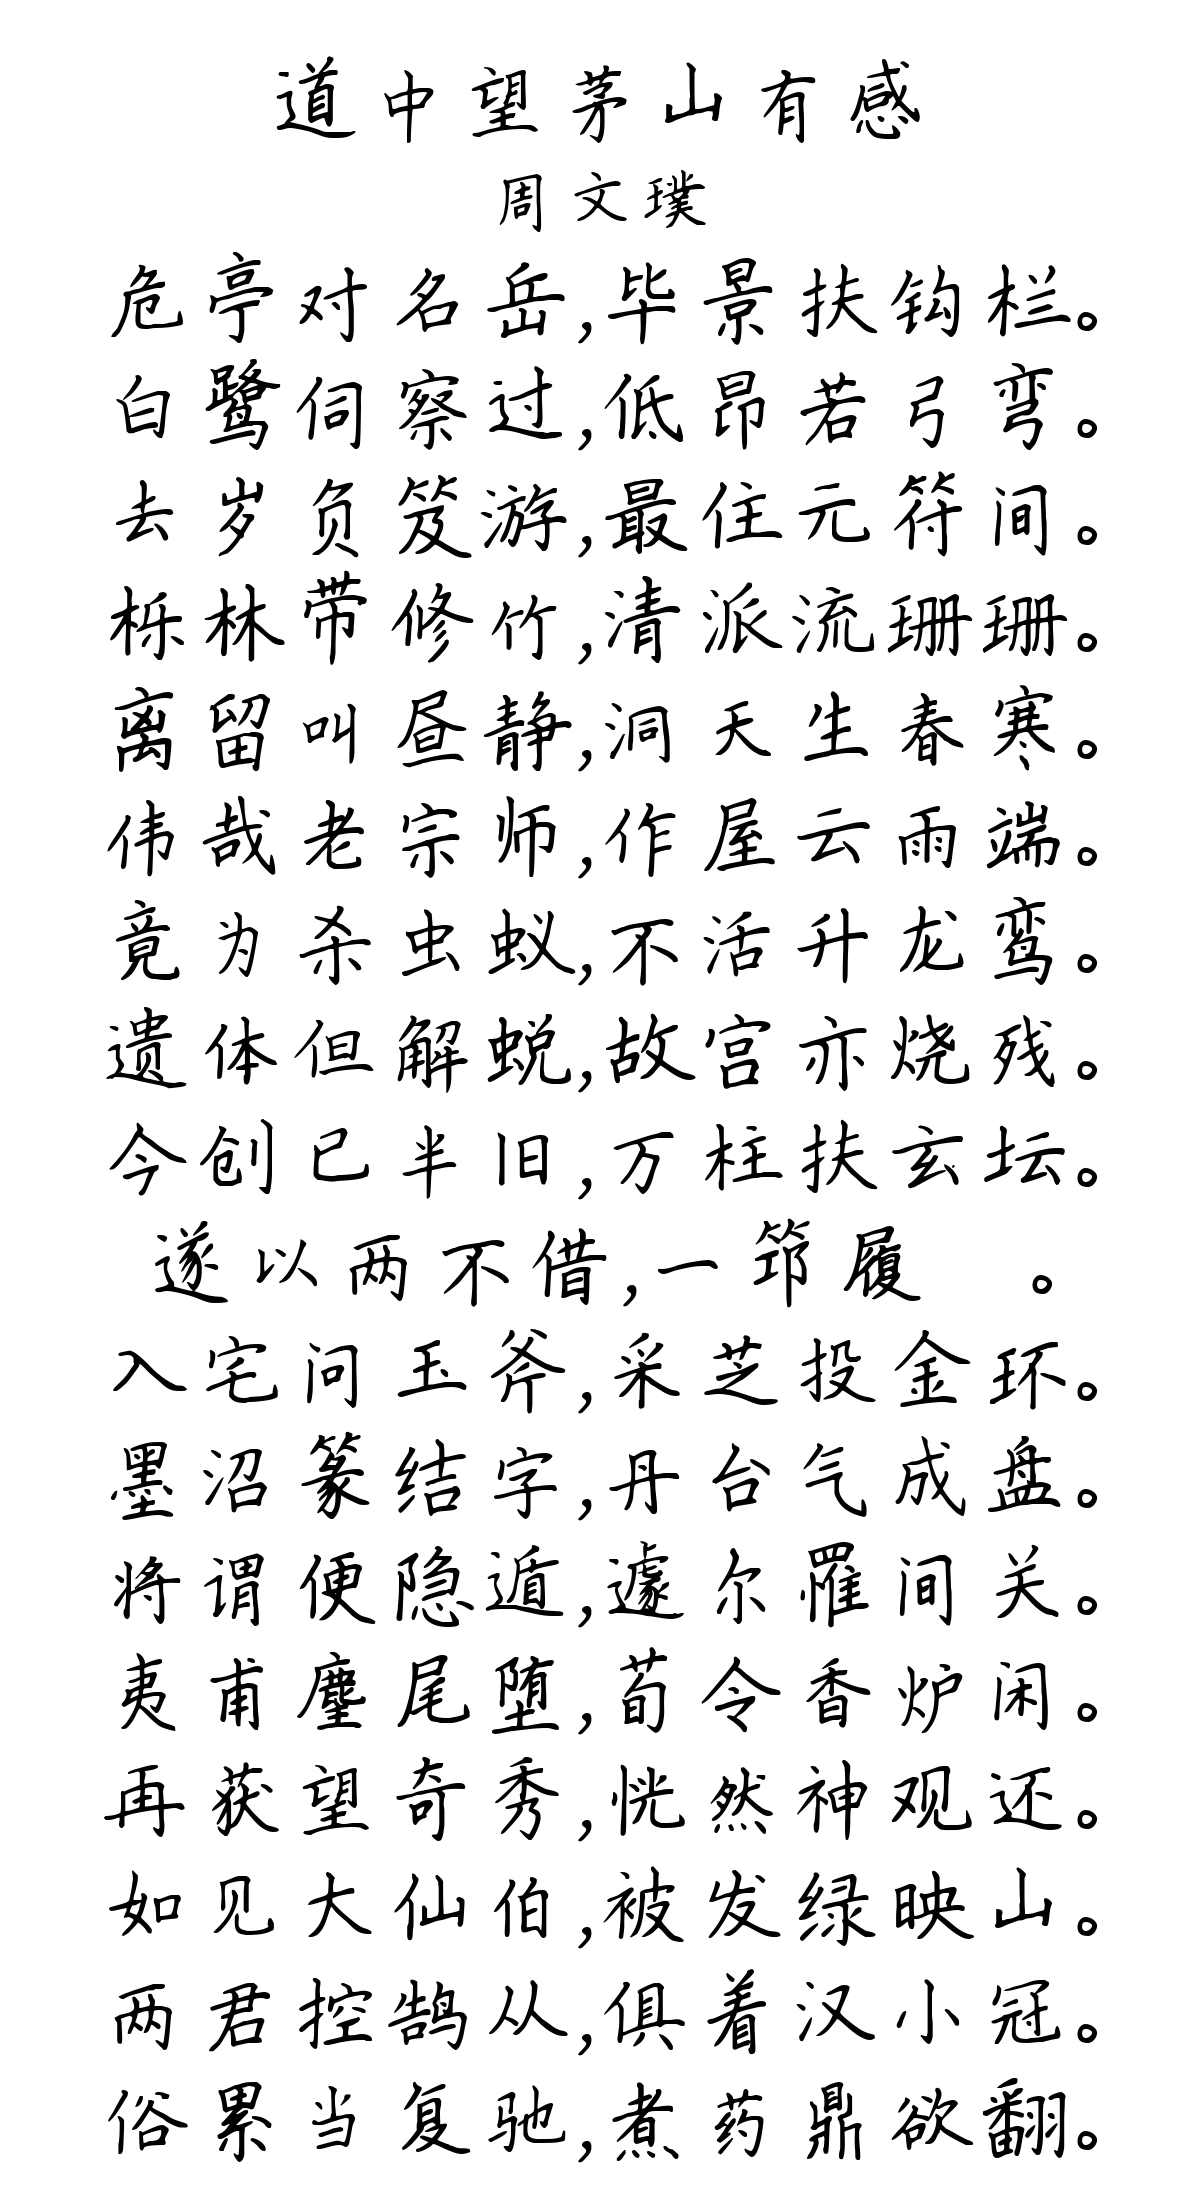 道中望茅山有感
周文璞
危亭对名岳,毕景扶钩栏。
白鹭伺察过,低昂若弓弯。
去岁负笈游,最住元符间。
栎林带修竹,清派流珊珊。
离留叫昼静,洞天生春寒。
伟哉老宗师,作屋云雨端。
竟为杀虫蚁,不活升龙鸾。
遗体但解蜕,故宫亦烧残。
今创已半旧,万柱扶玄坛。
遂以两不借,一筇履 。
入宅问玉斧,采芝投金环。
墨沼篆结字,丹台气成盘。
将谓便隐遁,遽尔罹间关。
夷甫麈尾堕,荀令香炉闲。
再获望奇秀,恍然神观还。
如见大仙伯,被发绿映山。
两君控鹄从,俱着汉小冠。
俗累当复驰,煮药鼎欲翻。